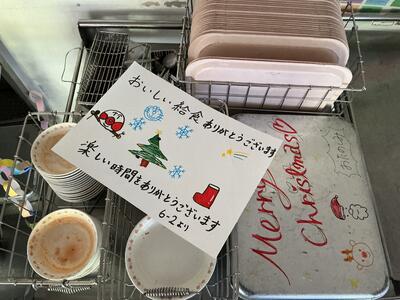 おいしい給食ありがとうございます
楽しい時間をありがとうございます
6-2より
Merry
Christmas